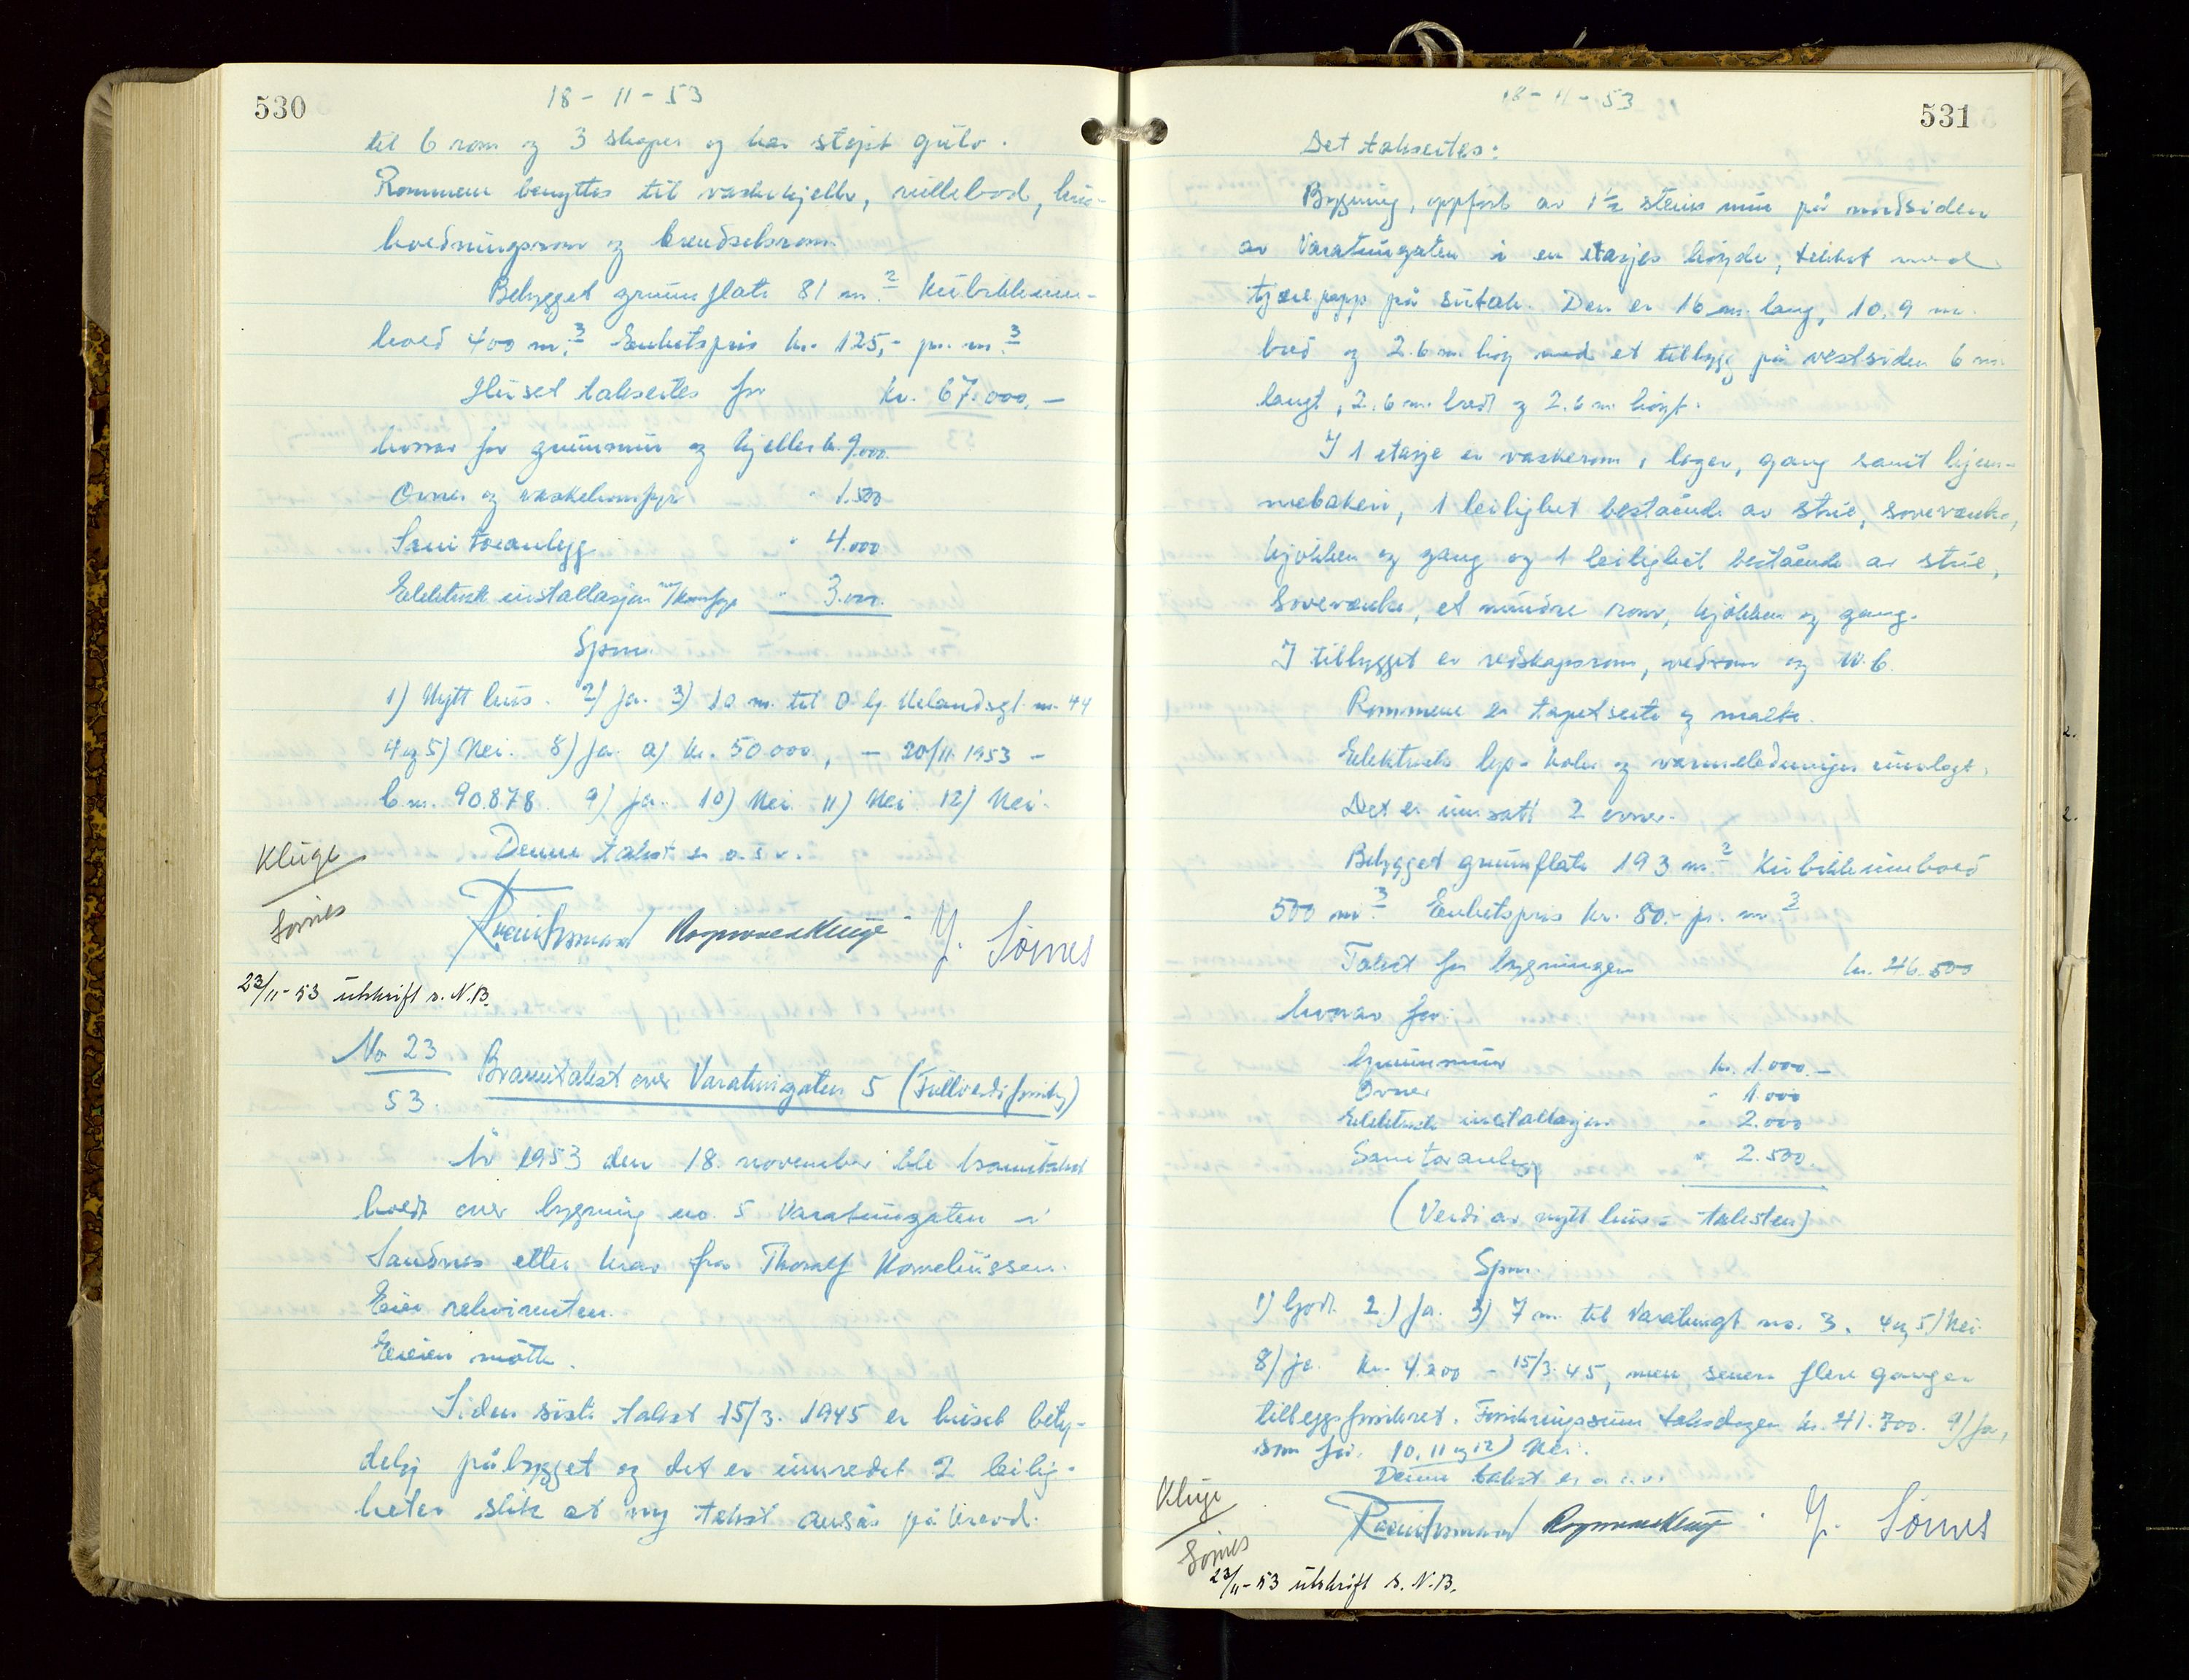 530
18 - 11 - 53
til 6 rom og 3 skaper og har støpt gulv.
Rommene benyttes til vaskekjeller, rullebod, hus-
holdningsrom og brendselsrom.
Bebygget grunnflate 81 m.² Kubikkinn-
hold 400 m.³ Enhetspris kr. 125,- pr. m.³
Huset takseres for kr. 67.000,-
hvorav for grunnmur og kjeller kr. 9.000.
Ovner og vaskekomfyr " 1.500
Sanitæranlegg " 4.000
Elektrisk installasjon m/komfyr " 3.000.
Spm.
1) Nytt hus. 2) Ja. 3) 10 m. til O. Kj. Uelandsgt. nr. 44
4 og 5) Nei. 8) Ja. a) kr. 50.000, - 20/11 1953 -
b. nr. 90.878. 9) Ja. 10) Nei. 11) Nei. 12) Nei.
Denne takst er o. s. v.
Kluge
Sømes
Y. Sømes
23/11-53 utskrift s. N.B.
No 23
53.
Branntakst over Varatungaten 5 (Fullverdiforsikr.)
År 1953 den 18. november ble branntakst
holdt over bygning no. 5 Varatungaten i
Sandnes etter krav fra Thoralf Korneliussen.
Eier rekvirenten.
Eieren møtte.
Siden siste takst 15/3. 1945 er huset bety-
delig påbygget og det er innredet 2 leilig-
heter slik at ny takst ansås påkrevd.
531
18 - 11 - 53
Det takseres:
Bygning, oppført av 1½ steins mur på nordsiden
av Varatungaten i en etasjes høyde, tekket med
tjærepapp på sutak. Den er 16 m. lang, 10.9 m.
bred og 2.6 m. høy med et tilbygg på vestsiden 6 m.
langt, 2.6 m. bredt og 2.6 m. høyt.
I 1 etasje er vaskerom, lager, gang samt hjem-
mebakeri, 1 leilighet bestående av stue, soveværelse,
kjøkken og gang og 1 leilighet bestående av stue,
soveværelse, et mindre rom, kjøkken og gang.
I tilbygget er redskapsrom, vedrom og W.C.
Rommene er tapetserte og malte.
Elektriske lys- koke og varmeledninger innlagt.
Det er innsatt 2 ovner.
Bebygget grunnflate 193 m.² Kubikkinnhold
500 m.³ Enhetspris kr. 80.- pr. m.³
Takst for bygningen kr. 46.500
hvorav for:
Grunnmur kr. 1.000.-
Ovner " 1.000
Elektrisk installasjon " 2.000
Sanitæranlegg " 2.500.
(Verdi av nytt hus = taksten)
Spm.
1) Godt. 2.) Ja. 3) 7 m. til Varatungt no. 3. 4 og 5) Nei.
8) ja. Kr. 4.200 - 15/3.45, men senere flere ganger
tilleggsforsikret. Forsikringssum taksdagen kr. 41.700. 9) Ja,
som før. 10, 11 og 12) Nei.
Denne takst er o. s. v.
Kluge
Sømes
Y. Sømes
23/11-53 utskrift s. N.B.